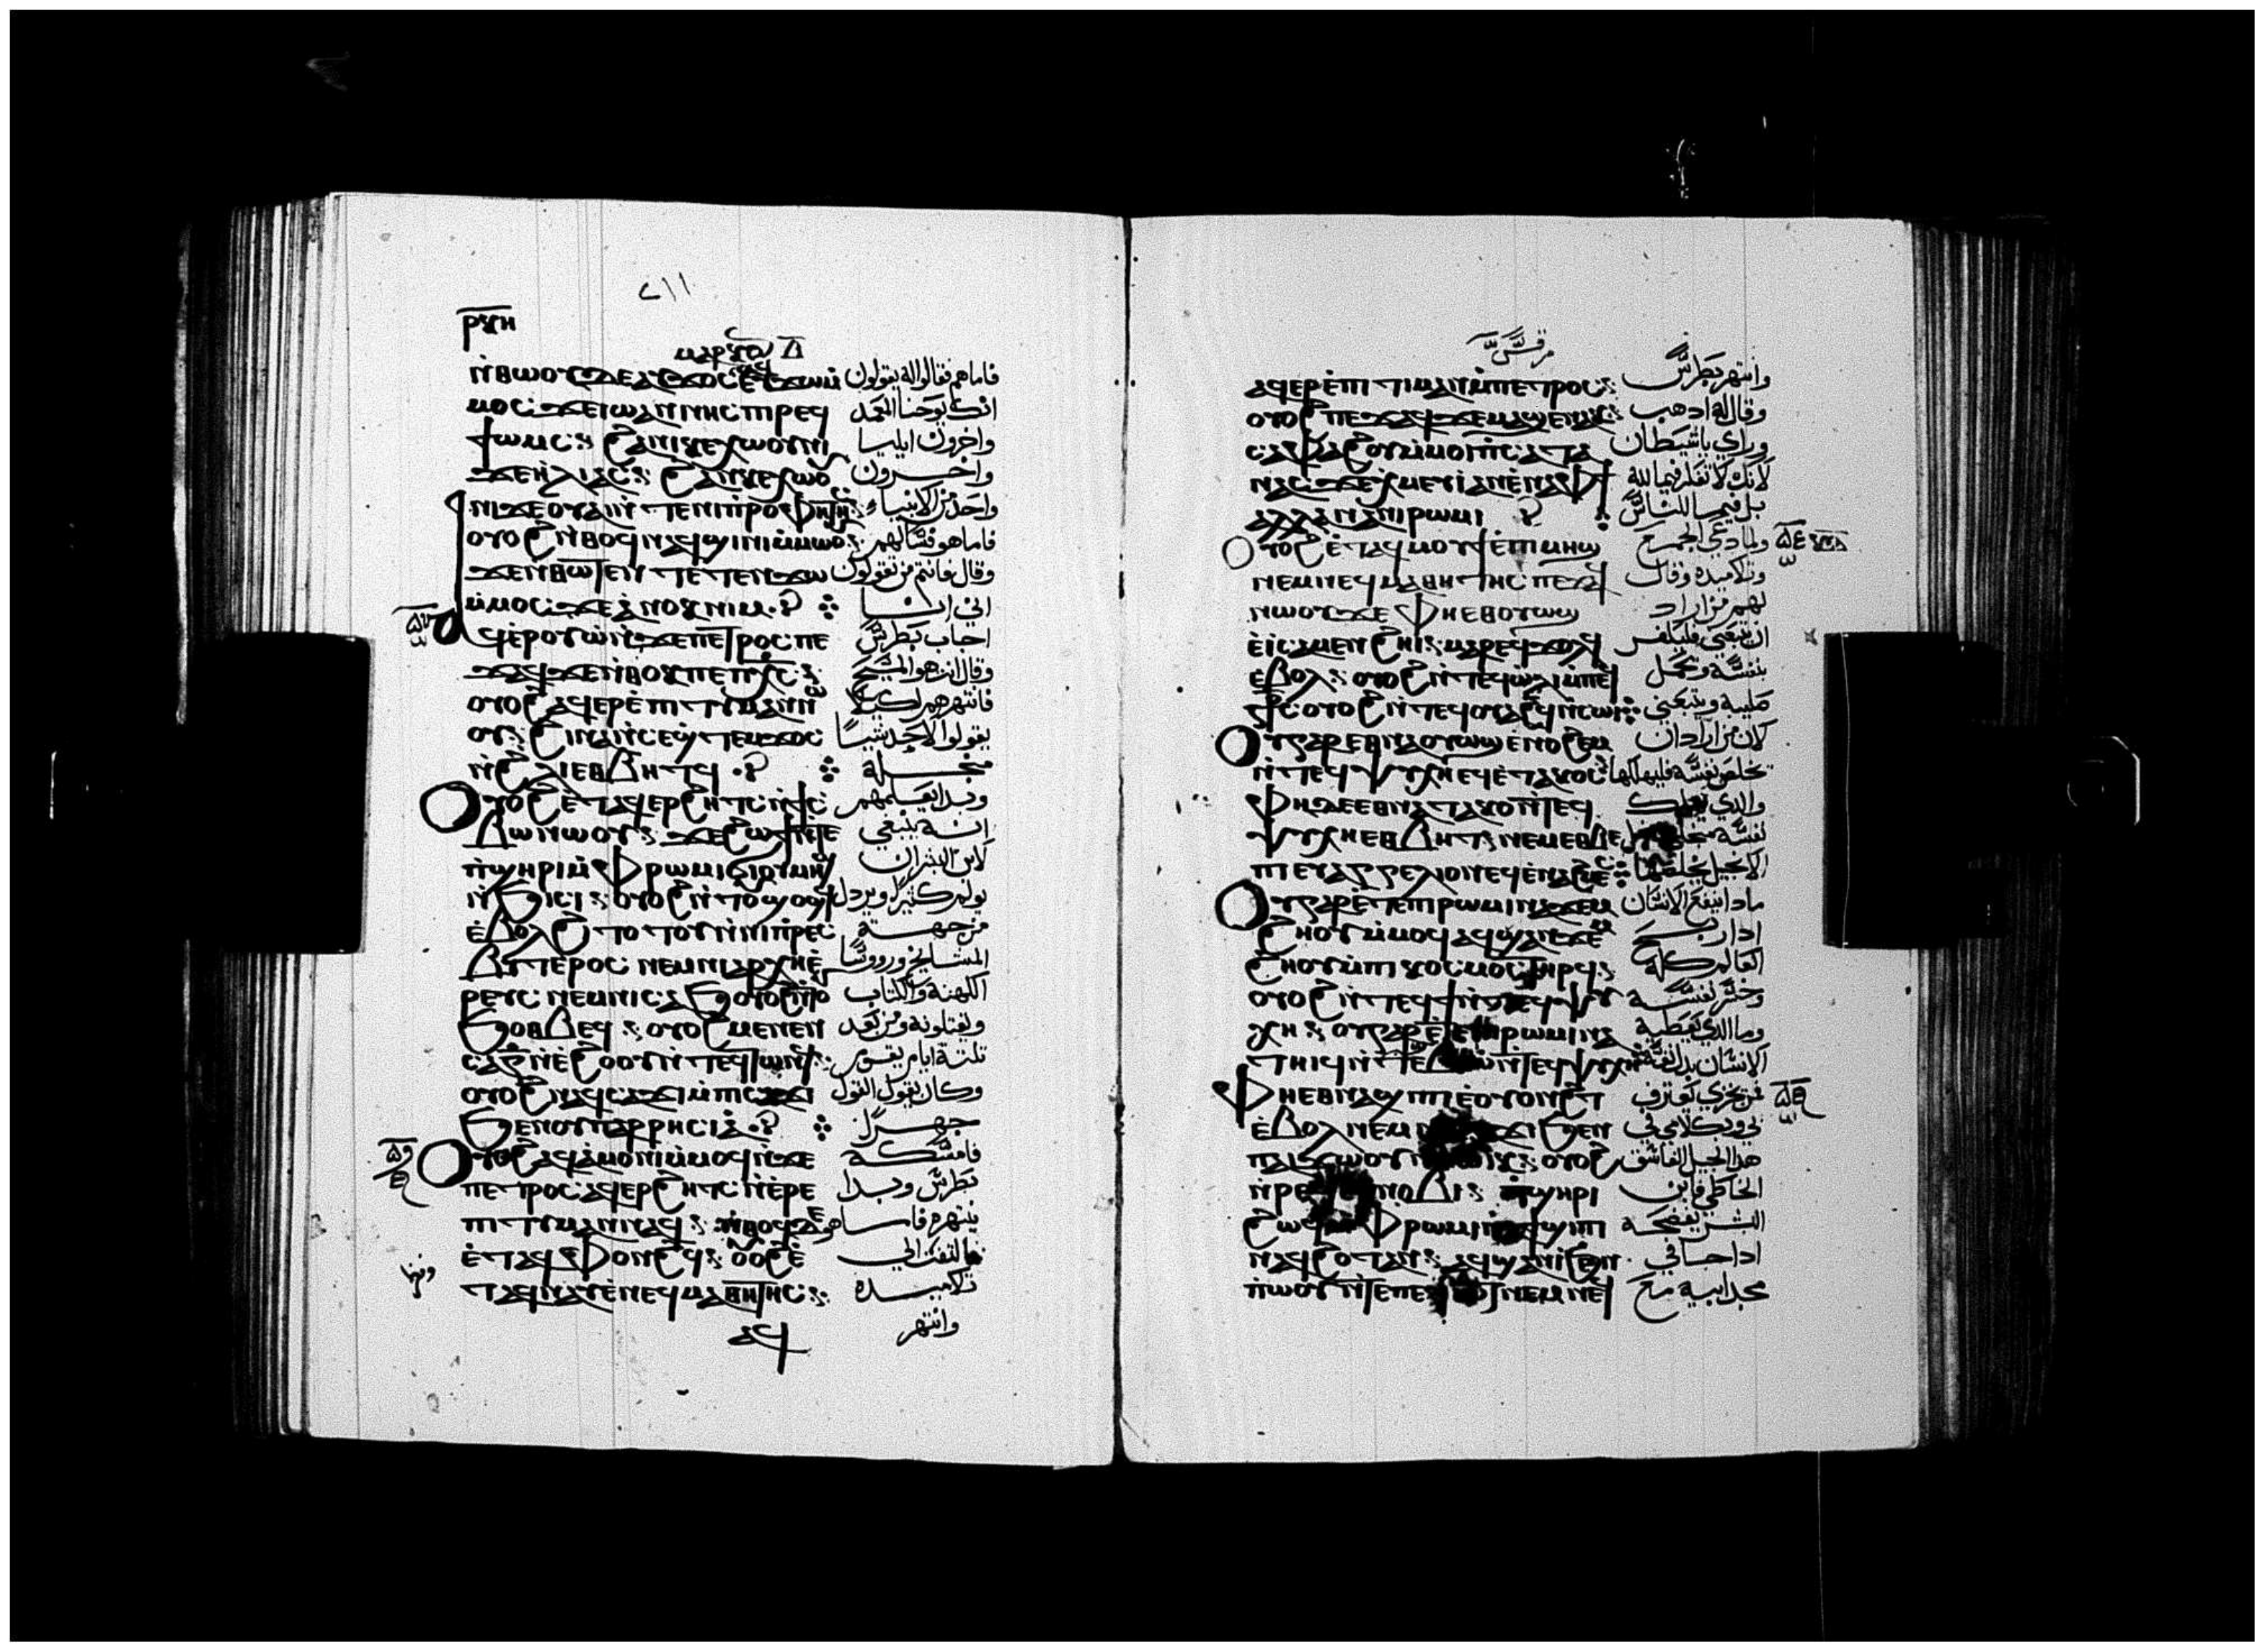 ⲣⲝⲏ
ⲙⲁⲣⲕⲟⲥ ⲁ̅
ⲛ̀ⲑⲱⲟⲩ ⲇⲉ ⲁⲩϫⲟⲥ ⲉⲩϫⲱ ⲙ̀ فاما هم فقالوا له يقولون
ⲙⲟⲥ ϫⲉ ⲓⲱⲁⲛⲛⲏⲥ ⲡⲓⲣⲉϥ انك يوحنا المعمد
ϯⲱⲙⲥ: ϩⲁⲛⲕⲉⲭⲱⲟⲩⲛⲓ واخرون ايليا
ϫⲉ ⲏⲗⲓⲁⲥ: ϩⲁⲛⲕⲉⲭⲱⲟⲩ واخرون
ⲛⲓ ϫⲉ ⲟⲩⲁⲓ ⲛ̀ⲧⲉ ⲛⲓⲡⲣⲟⲫⲏⲧⲏⲥ: واحد من الانبياء
ⲟⲩⲟϩ ⲛ̀ⲑⲟϥ ⲛⲁϥϣⲓⲛⲓ ⲙ̀ⲙⲱⲟⲩ: فاما هو فسالهم
ϫⲉ ⲛ̀ⲑⲱⲧⲉⲛ ⲧⲉⲧⲉⲛϫⲱ وقال فانتم من تقولون
ⲙ̀ⲙⲟⲥ ϫⲉ ⲁ̀ⲛⲟⲕ ⲛⲓⲙ اني انا
ⲁϥⲉⲣⲟⲩⲱ̀ ⲛ̀ϫⲉ ⲡⲉⲧⲣⲟⲥ ⲡⲉ اجاب بطرس
ϫⲁϥ ϫⲉ ⲛ̀ⲑⲟⲕ ⲡⲉ ⲡⲭ̅ⲥ: وقال انت هو المسيح
ⲟⲩⲟϩ ⲁϥⲉⲣⲉ̀ⲡⲓⲧⲓⲙⲁⲛ ⲛⲱ فانتهرهم لكي لا
ⲟⲩ: ϩⲓⲛⲁ ⲛ̀ⲥⲉϣⲧⲉⲙϫⲟⲥ يقولوا لاحد شيا
ⲛ̀ϩⲗⲓ ⲉⲑⲃⲏⲧϥ من اجله
ⲟⲩⲟϩ ⲉ̀ⲧⲁϥⲉⲣϩⲏⲧⲥ ⲛ̀ϯⲥ وبدا يعلمهم
ⲃⲱ ⲛⲱⲟⲩ: ϫⲉ ϩⲱϯ ⲛ̀ⲧⲉ انه ينبغي
ⲡ̀ϣⲏⲣⲓ ⲙ̀ⲫⲣⲱⲙⲓ ϭⲓ ⲟⲩⲙⲏϣ لابن البشر ان
ⲛ̀ϧⲓⲥⲓ: ⲟⲩⲟϩ ⲛ̀ⲧⲟⲩϣⲟϣϥ يولم كثيرا ويرذل
ⲉ̀ⲃⲟⲗ ϩⲓⲧⲟⲧⲟⲩ ⲛ̀ⲛⲓⲡⲣⲉⲥ من جهة
ⲃⲩⲧⲉⲣⲟⲥ ⲛⲉⲙ ⲛⲓⲁⲣⲭⲏⲉ̀ المشايخ وروسا
ⲣⲉⲩⲥ ⲛⲉⲙ ⲛⲓⲥⲁϧ ⲟⲩⲟϩ ⲛ̀ⲧⲟⲩ الكهنة والكتاب
ϧⲟⲑⲃⲉϥ: ⲟⲩⲟϩ ⲙⲉⲛⲉⲛ ويقتلونه ومن بعد
ⲥⲁ ⲅ̅ ⲛ̀ⲉ̀ϩⲟⲟⲩ ⲛ̀ⲧⲉϥⲧⲱⲛϥ: تلتة ايام يقوم
ⲟⲩⲟϩ ⲛⲁϥⲥⲁϫⲓ ⲙ̀ⲡⲥⲁϫⲓ وكان يقول القول
ϧⲉⲛ ⲟⲩⲡⲁⲣⲣⲏⲥⲓⲁ̀ جهرا
ⲟⲩⲟϩ ⲁϥⲁ̀ⲙⲟⲛⲓ ⲙ̀ⲙⲟϥ ⲛ̀ϫⲉ فامسكه
ⲡⲉⲧⲣⲟⲥ ⲁϥⲉⲣϩⲏⲧⲥ ⲛ̀ⲉⲣⲉ̀ بطرس وبدا
ⲡⲓⲧⲓⲙⲁⲛ ⲛⲁϥ: ⲛ̀ⲑⲟϥ ⲇⲉ ينتهره فاما هو
ⲉ̀ⲧⲁϥⲫⲟⲛϩϥ: ⲟⲩⲟϩ ⲉ̀ فالتفت الي
ⲧⲁϥⲛⲁⲩ ⲉ̀ⲛⲉϥⲙⲁⲑⲏⲧⲏⲥ: تلاميذه
ⲁϥ وانتهر
مرقس
ⲁϥⲉⲣⲉ̀ⲡⲓⲧⲓⲙⲁⲛ ⲙ̀ⲡⲉⲧⲣⲟⲥ: وانتهر بطرس
ⲟⲩⲟϩ ⲡⲉϫⲁϥ ϫⲉ ⲙⲁϣⲉⲛⲁⲕ: وقال له ادهب
ⲥⲁⲫⲁϩⲟⲩ ⲙ̀ⲙⲟⲓ ⲡⲥⲁⲧⲁ وراي يا شيطان
ⲛⲁⲥ ϫⲉ ⲭ̀ⲙⲉⲩⲓ ⲁⲛ ⲉ̀ⲛⲁ ⲫϯ لانك لا تفكر فيما لله
ⲁⲗⲗⲁ ⲛⲁ ⲛⲓⲣⲱⲙⲓ بل فيما للناس
ⲟⲩⲟϩ ⲉ̀ⲧⲁϥⲙⲟⲩϯ ⲉ̀ⲡⲓⲙⲏϣ ولما دعي الجمع
ⲛⲉⲙ ⲛⲉϥⲙⲁⲑⲏⲧⲏⲥ ⲡⲉϫⲁϥ وتلاميذه وقال
ⲛⲱⲟⲩ ϫⲉ ⲫⲏ ⲉⲑⲟⲩⲱϣ لهم من اراد
ⲉ̀ⲓ ⲥⲁⲙⲉⲛϩⲏⲓ: ⲙⲁⲣⲉϥϫⲟⲗϥ ان يتبعني فليكفر
ⲉ̀ⲃⲟⲗ: ⲟⲩⲟϩ ⲛ̀ⲧⲉϥⲱ̀ⲗⲓ ⲙ̀ⲡⲉϥ بنفسه ويحمل
ⲥ̅ⲧⲥ ⲟⲩⲟϩ ⲛ̀ⲧⲉϥⲟⲩⲁϩϥ ⲛ̀ⲥⲱⲓ صليبه ويتبعني
ⲟⲩ ⲅⲁⲣ ⲉⲑⲛⲁⲟⲩⲱϣ ⲉ̀ⲛⲟϩⲉⲙ لان من اراد ان
ⲛ̀ⲧⲉϥⲯⲩⲭⲏ ⲉϥⲉ̀ⲧⲁⲕⲟⲥ يخلص نفسه فليهلكها
ⲫⲏ ⲇⲉ ⲉⲑⲛⲁⲧⲁⲕⲟ ⲛ̀ⲧⲉϥ والدي يهلك
ⲯⲩⲭⲏ ⲉⲑⲃⲏⲧ ⲛⲉⲙ ⲉⲑⲃⲉ نفسه
ⲡⲓⲉⲩⲁⲅⲅⲉⲗⲓⲟⲛ ⲉϥⲉ̀ⲛⲁϩⲙⲉⲥ الانجيل يخلصها
ⲟⲩ ⲅⲁⲣ ⲉ̀ⲧⲉ ⲡⲓⲣⲱⲙⲓ ⲛⲁϫⲉⲙ مادا ينفع الانسان
ϩⲏⲟⲩ ⲙ̀ⲙⲟϥ ⲁϥϣⲁⲛϫⲉⲙ ادا ربح
ϩⲏⲟⲩ ⲙ̀ⲡⲓⲕⲟⲥⲙⲟⲥ ⲧⲏⲣϥ: العالم كله
ⲟⲩⲟϩ ⲛ̀ⲧⲉϥϯⲟⲥⲓ ⲛ̀ⲧⲉϥⲯⲩ وخسر نفسه
ⲭⲏ: ⲟⲩ ⲅⲁⲣ ⲉ̀ⲧⲉ ⲡⲓⲣⲱⲙⲓ ⲛⲁ وما الدي يعطيه
ⲧⲏⲓϥ ⲛ̀ⲧϣⲉⲃⲓⲱ̀ ⲛ̀ⲧⲉϥⲯⲩⲭⲏ الانسان بدل نفسه
ⲫⲏ ⲉⲑⲛⲁϣⲓⲡⲓ ⲉ̀ⲟⲩⲟⲛϩⲧ فمن يخزي يعترف
ⲉ̀ⲃⲟⲗ ⲛⲉⲙ ϧⲉⲛ بي وبكلامي في
ⲡⲁⲓϫⲱⲟⲩ ⲟⲩⲟϩ هدا الجيل الفاسق
ⲛ̀ⲣⲉϥⲉⲣⲛⲟⲃⲓ: ⲡ̀ϣⲏⲣⲓ الخاطي فابن
ϩⲱϥ ⲙ̀ⲫⲣⲱⲙⲓ البشر يفضحه
ⲛⲁϥ ϩⲟⲧⲁⲛ: ⲁϥϣⲁⲛⲓ̀ ϧⲉⲛ ادا جا في
ⲡ̀ⲱⲟⲩ ⲛ̀ⲧⲉ ⲡⲉϥⲓⲱⲧ ⲛⲉⲙ ⲛⲉϥ مجد ابيه مع